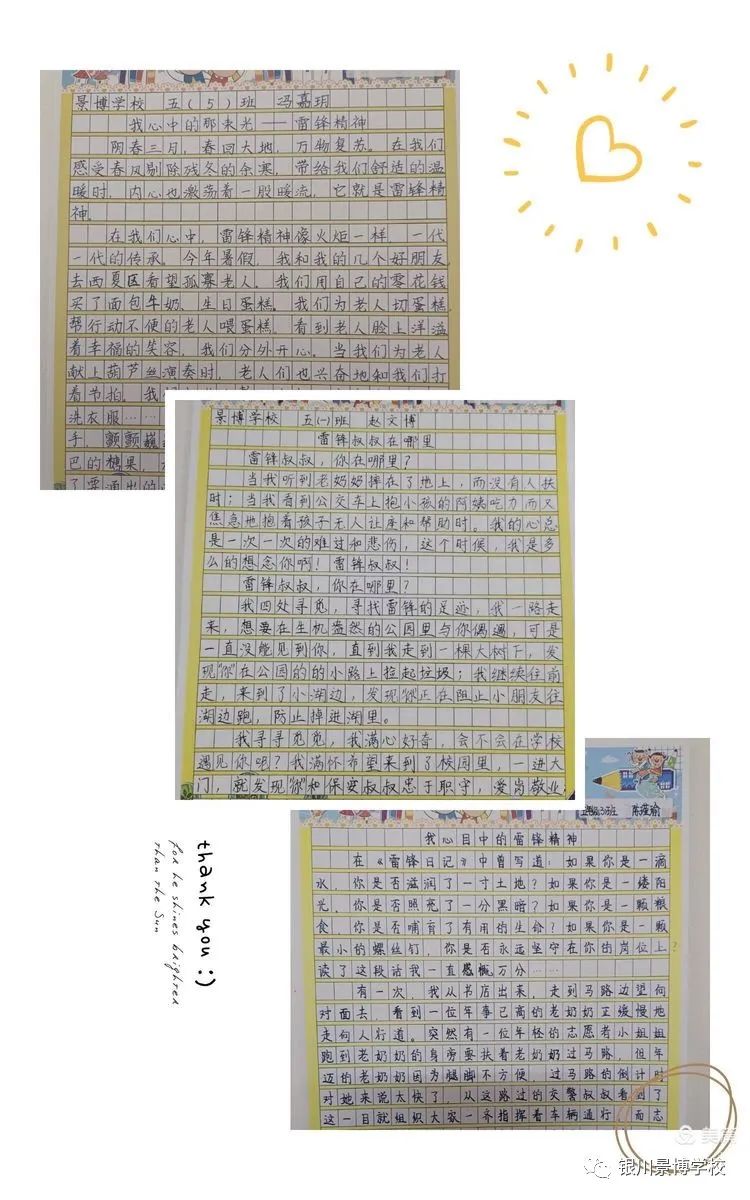 景博学校 五(5)班 冯嘉玥
我心中的那束光——雷锋精神
阴春三月,春回大地,万物复苏。在我们
感受春风剔除残冬的余寒,带给我们舒适的温
暖时,内心也激荡着一股暖流,它就是雷锋精
神。
在我们心中,雷锋精神像火炬一样,一代
一代的传承。今年暑假,我和我的几个好朋友
去西夏区看望孤寡老人。我们用自己的零花钱
买了面包牛奶、生日蛋糕。我们为老人切蛋糕
帮行动不便的老人喂蛋糕,看到老人脸上洋溢
着幸福的笑容,我们分外开心。当我们为老人
献上葫芦丝演奏时,老人们也兴奋地和我们打
着节拍。我们
洗衣服……
手,颤颤巍
巴的糖果,
景博学校 五(一)班 赵文博
雷锋叔叔在哪里
雷锋叔叔,你在哪里?
当我听到老奶奶摔在了地上,而没有人扶
时;当我看到公交车上抱小孩的阿姨吃力而又
焦急地抱着孩子无人让座和帮助时。我的心总
是一次一次的难过和悲伤,这个时候,我是多
么的想念你啊!雷锋叔叔!
雷锋叔叔,你在哪里?
我四处寻觅,寻找雷锋的足迹,我一路走
来,想要在生机盎然的公园里与你偶遇,可是
一直没能见到你,直到我走到一棵大树下,发
现“你”在公园的的小路上捡起垃圾;我继续往前
走,来到了小湖边,发现“你”正在阻止小朋友往
湖边跑,防止掉进湖里。
我寻寻觅觅,我满心好奇,会不会在学校
遇见你呢?我满怀希望来到了校园里,一进大
门,就发现“你”和保安叔叔忠于职守,爱岗敬业,
班 陈瑾瑜
我心目中的雷锋精神
在《雷锋日记》中曾写道:如果你是一滴
水,你是否滋润了一寸土地?如果你是一缕阳
光,你是否照亮了一分黑暗?如果你是一颗粮
食,你是否哺育了有用的生命?如果你是一颗
最小的螺丝钉,你是否永远坚守在你的岗位上?
读了这段话我一直感慨万分……
有一次,我从书店出来,走到马路边望向
对面去,看到一位年事已高的老奶奶正缓慢地
走向人行道。突然有一位年轻的志愿者小姐姐
跑到老奶奶的身旁要扶着老奶奶过马路,但年
迈的老奶奶因为腿脚不方便,过马路的倒计时
对她来说太快了,从这路过的交警叔叔看到了
这一目就组织大家一齐指挥着车辆通行,而志
thank you :)
for he shines brighter
than the Sun
美篇
银川景博学校